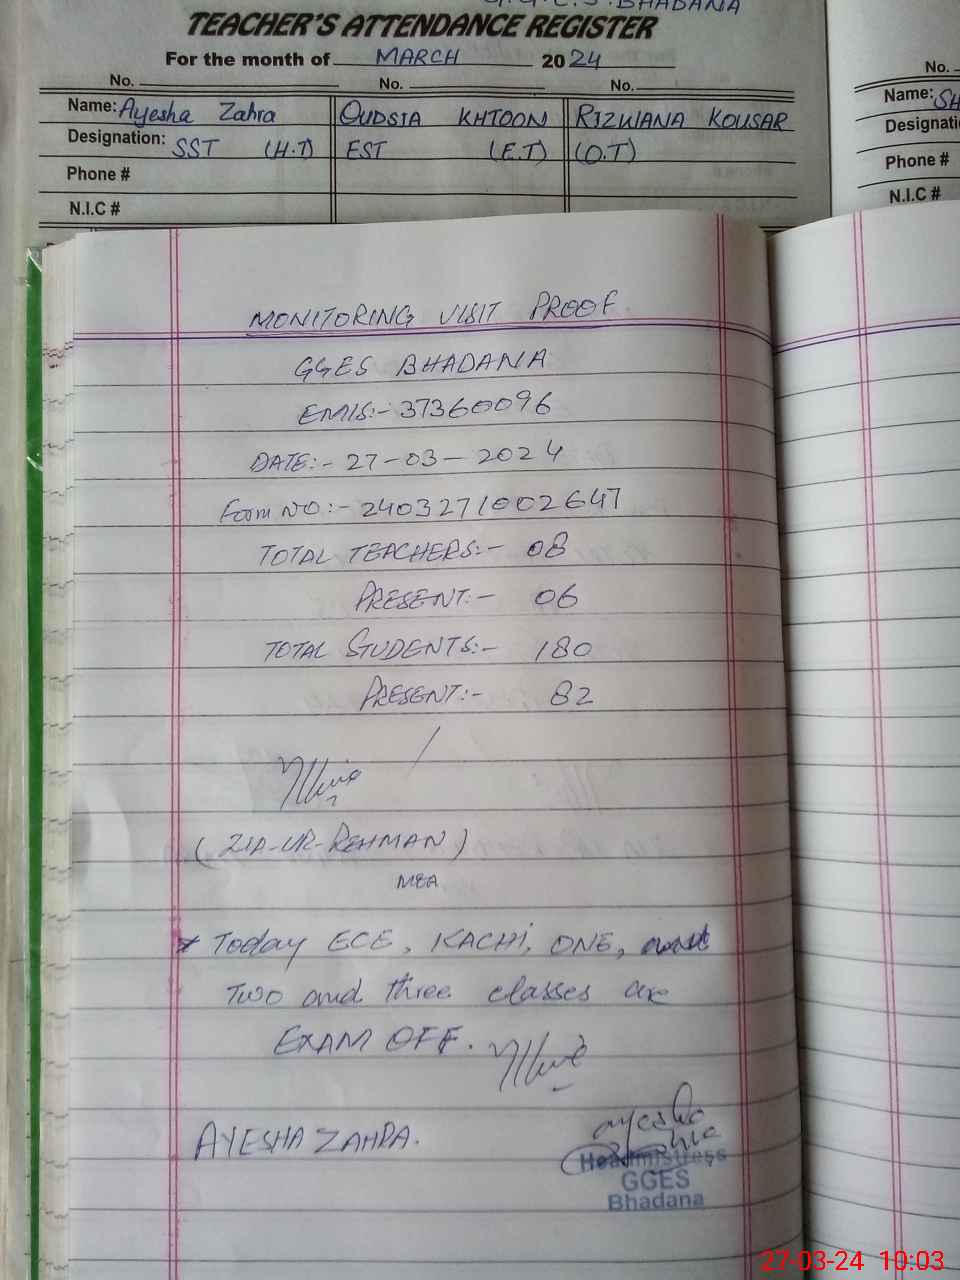 G.G.E.S. BHADANA
TEACHER'S ATTENDANCE REGISTER
For the month of MARCH 2024
No. No. No.
Name: Ayesha Zahra QUDSIA KHTOON RIZWANA KOUSAR
Designation: SST (H.T) EST (E.T) (O.T)
Phone #
N.I.C #
No.
Name: SH
Designati
Phone #
N.I.C #
MONITORING VISIT PROOF.
GGES BHADANA
EMIS:- 37360096
DATE:- 27-03-2024
Form NO:- 2403271002647
TOTAL TEACHERS:- 08
PRESENT:- 06
TOTAL STUDENTS:- 180
PRESENT:- 82
(ZIA-UR-REHMAN)
MEA
* Today ECE, KACHI, ONE,
TWO and three classes are
EXAM OFF.
AYESHA ZAHRA.
ayesha
Headmistress
GGES
Bhadana
27-03-24 10:03